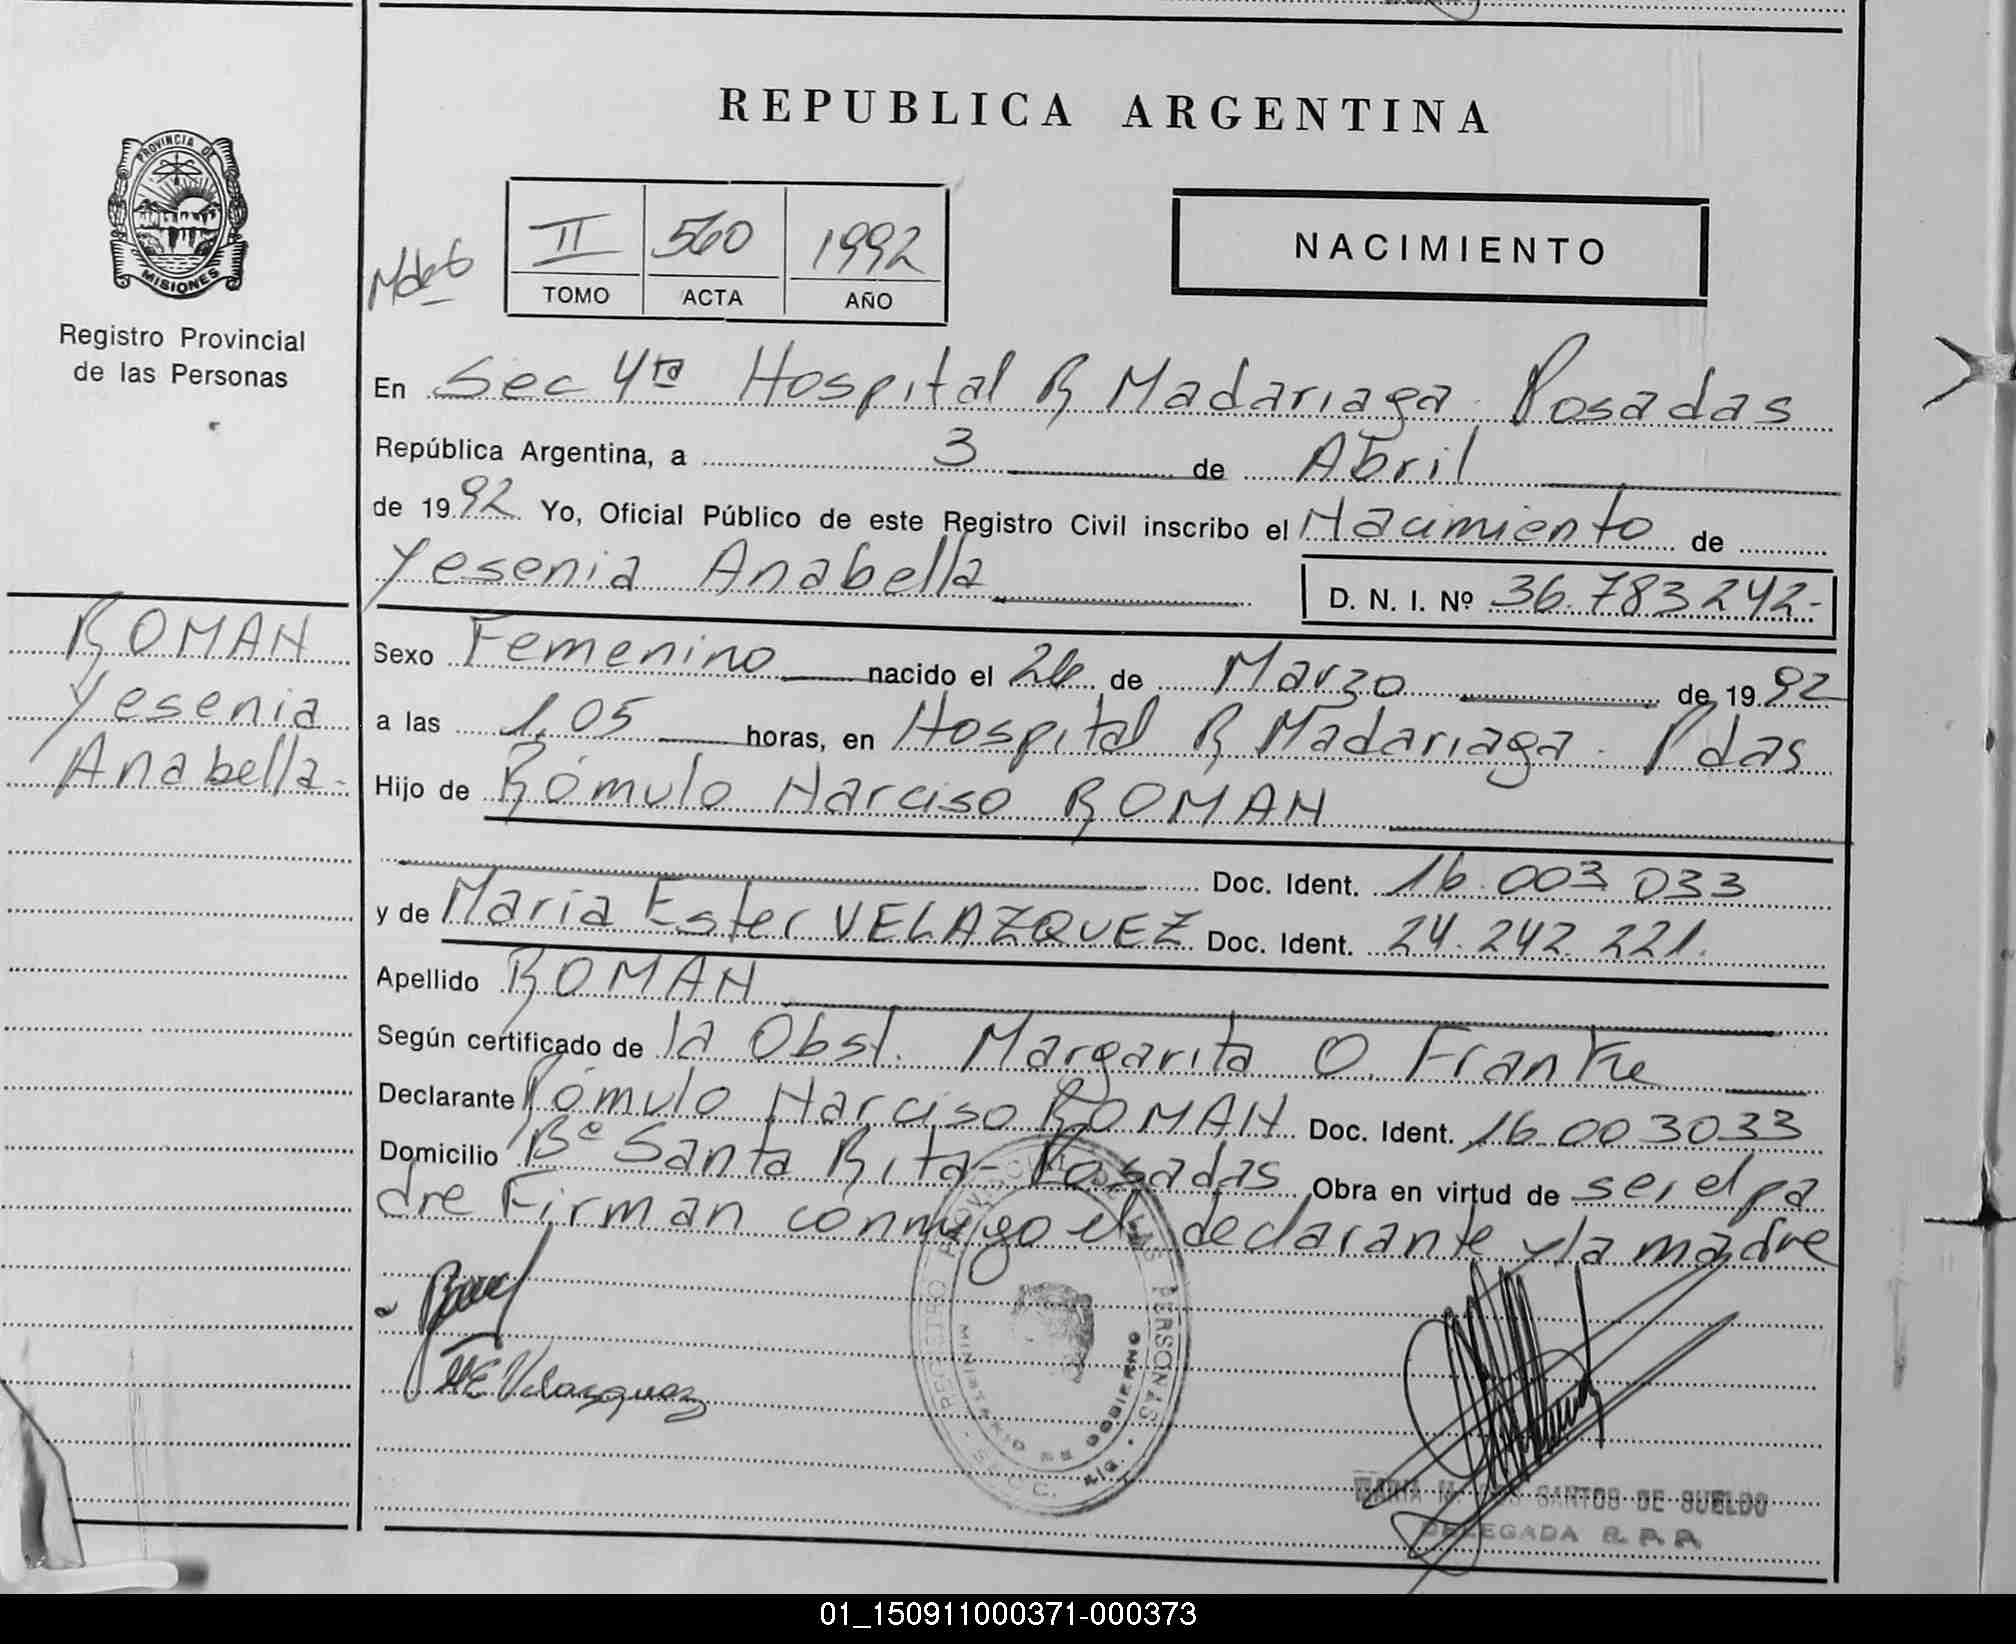 REPUBLICA ARGENTINA
PROVINCIA DE
MISIONES
Registro Provincial
de las Personas
II 560 1992
TOMO ACTA AÑO
NACIMIENTO
En Sec 4ta Hospital R Madariaga Posadas
República Argentina, a 3 de Abril
de 1992 Yo, Oficial Público de este Registro Civil inscribo el Nacimiento de
Yesenia Anabella D. N. I. Nº 36.783242-
ROMAN
Yesenia
Anabella-
Sexo Femenino nacido el 26 de Marzo de 1992
a las 1,05 horas, en Hospital R Madariaga. Pdas
Hijo de Rómulo Narciso ROMAN
Doc. Ident. 16.003.033
y de María Ester VELAZQUEZ Doc. Ident. 24.242.221.
Apellido ROMAN
Según certificado de la Obst. Margarita O. Franke
Declarante Rómulo Narciso ROMAN Doc. Ident. 16.003033
Domicilio Bº Santa Rita- Posadas Obra en virtud de ser el pa
dre Firman conmigo el declarante y la madre
ME Velazquez
REGISTRO PROVINCIAL DE LAS PERSONAS
MINISTERIO DE GOBIERNO
MARIA M. DOS SANTOS DE SUELDO
DELEGADA R. P. P.
01_150911000371-000373